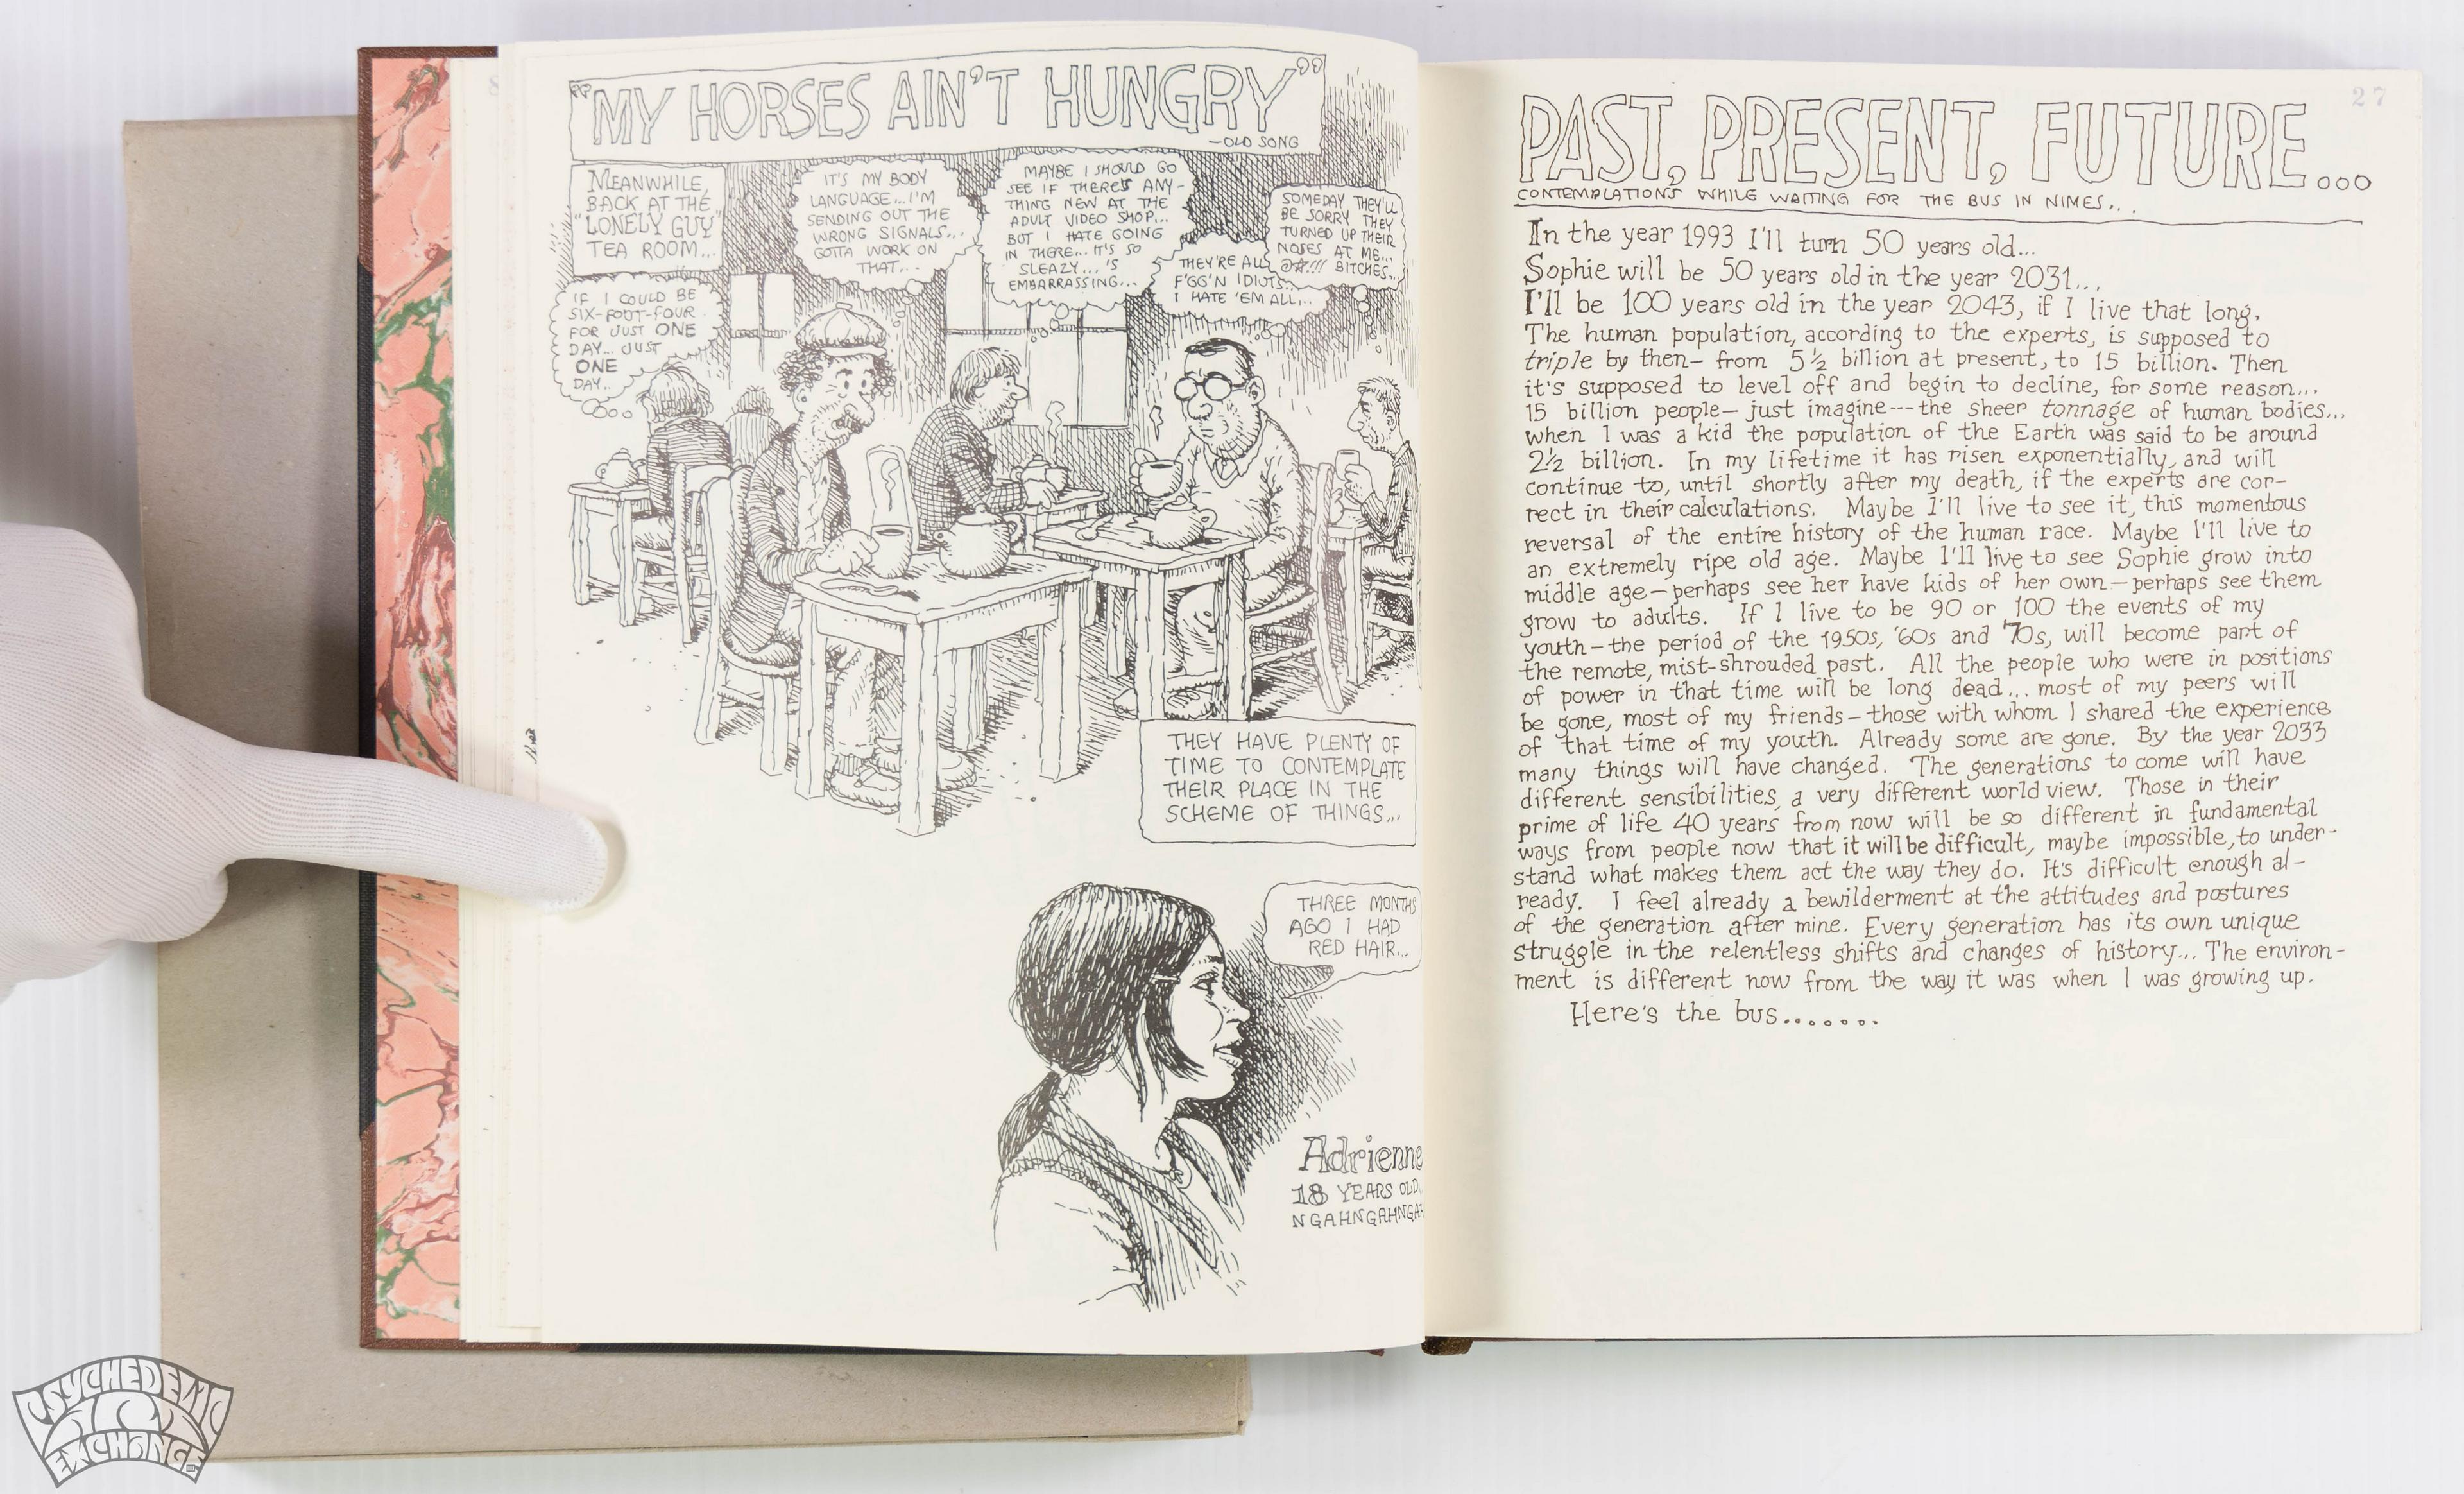 "MY HORSES AIN'T HUNGRY"
—OLD SONG
MEANWHILE,
BACK AT THE
"LONELY GUY"
TEA ROOM...
IF I COULD BE
SIX-FOOT-FOUR
FOR JUST ONE
DAY... JUST
ONE
DAY...
IT'S MY BODY
LANGUAGE... I'M
SENDING OUT THE
WRONG SIGNALS...
GOTTA WORK ON
THAT...
MAYBE I SHOULD GO
SEE IF THERE'S ANY-
THING NEW AT THE
ADULT VIDEO SHOP...
BUT I HATE GOING
IN THERE... IT'S SO
SLEAZY... 'S
EMBARRASSING...
THEY'RE ALL
F'GG'N IDIOTS...
I HATE 'EM ALL...
SOMEDAY THEY'LL
BE SORRY THEY
TURNED UP THEIR
NOSES AT ME...
@#!!! BITCHES...
THEY HAVE PLENTY OF
TIME TO CONTEMPLATE
THEIR PLACE IN THE
SCHEME OF THINGS...
THREE MONTHS
AGO I HAD
RED HAIR...
Adrienne
18 YEARS OLD
NGAHNGAHNGAH
27
PAST, PRESENT, FUTURE...
CONTEMPLATIONS WHILE WAITING FOR THE BUS IN NIMES...
In the year 1993 I'll turn 50 years old...
Sophie will be 50 years old in the year 2031...
I'll be 100 years old in the year 2043, if I live that long.
The human population, according to the experts, is supposed to
triple by then— from 5½ billion at present, to 15 billion. Then
it's supposed to level off and begin to decline, for some reason...
15 billion people— just imagine---the sheer tonnage of human bodies...
when I was a kid the population of the Earth was said to be around
2½ billion. In my lifetime it has risen exponentially, and will
continue to, until shortly after my death, if the experts are cor-
rect in their calculations. Maybe I'll live to see it, this momentous
reversal of the entire history of the human race. Maybe I'll live to
an extremely ripe old age. Maybe I'll live to see Sophie grow into
middle age—perhaps see her have kids of her own—perhaps see them
grow to adults. If I live to be 90 or 100 the events of my
youth—the period of the 1950s, '60s and '70s, will become part of
the remote, mist-shrouded past. All the people who were in positions
of power in that time will be long dead... most of my peers will
be gone, most of my friends—those with whom I shared the experience
of that time of my youth. Already some are gone. By the year 2033
many things will have changed. The generations to come will have
different sensibilities, a very different world view. Those in their
prime of life 40 years from now will be so different in fundamental
ways from people now that it will be difficult, maybe impossible, to under-
stand what makes them act the way they do. It's difficult enough al-
ready. I feel already a bewilderment at the attitudes and postures
of the generation after mine. Every generation has its own unique
struggle in the relentless shifts and changes of history... The environ-
ment is different now from the way it was when I was growing up.
Here's the bus.......
PSYCHEDELIC
ART
EXCHANGE